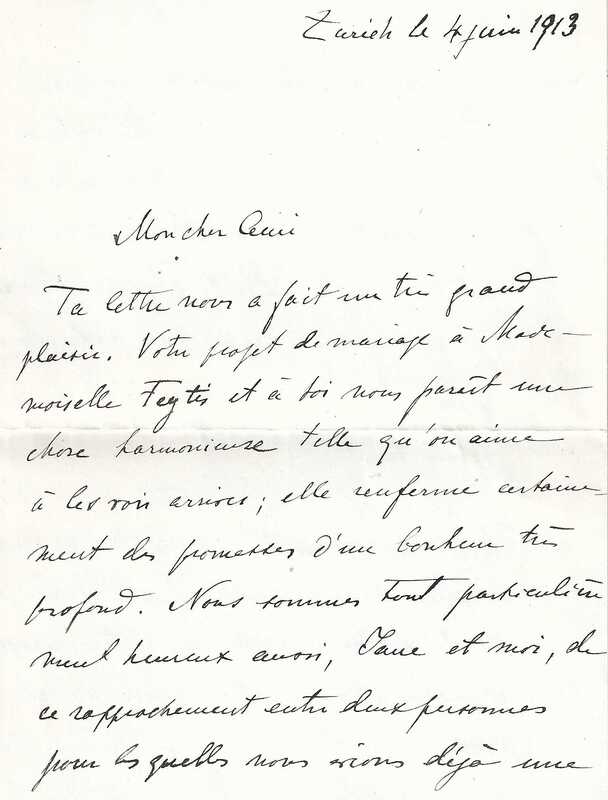 Zurich le 4 juin 1913
Mon cher
Ta lettre nous a fait un très grand
plaisir. Votre projet de mariage à Made-
moiselle Feytis et à toi nous paraît une
chose harmonieuse telle qu'on aime
à les voir arriver ; elle renferme certaine-
ment des promesses d'un bonheur très
profond. Nous sommes tout particulière
ment heureux aussi, Jane et moi, de
ce rapprochement entre deux personnes
pour lesquelles nous avions déjà une